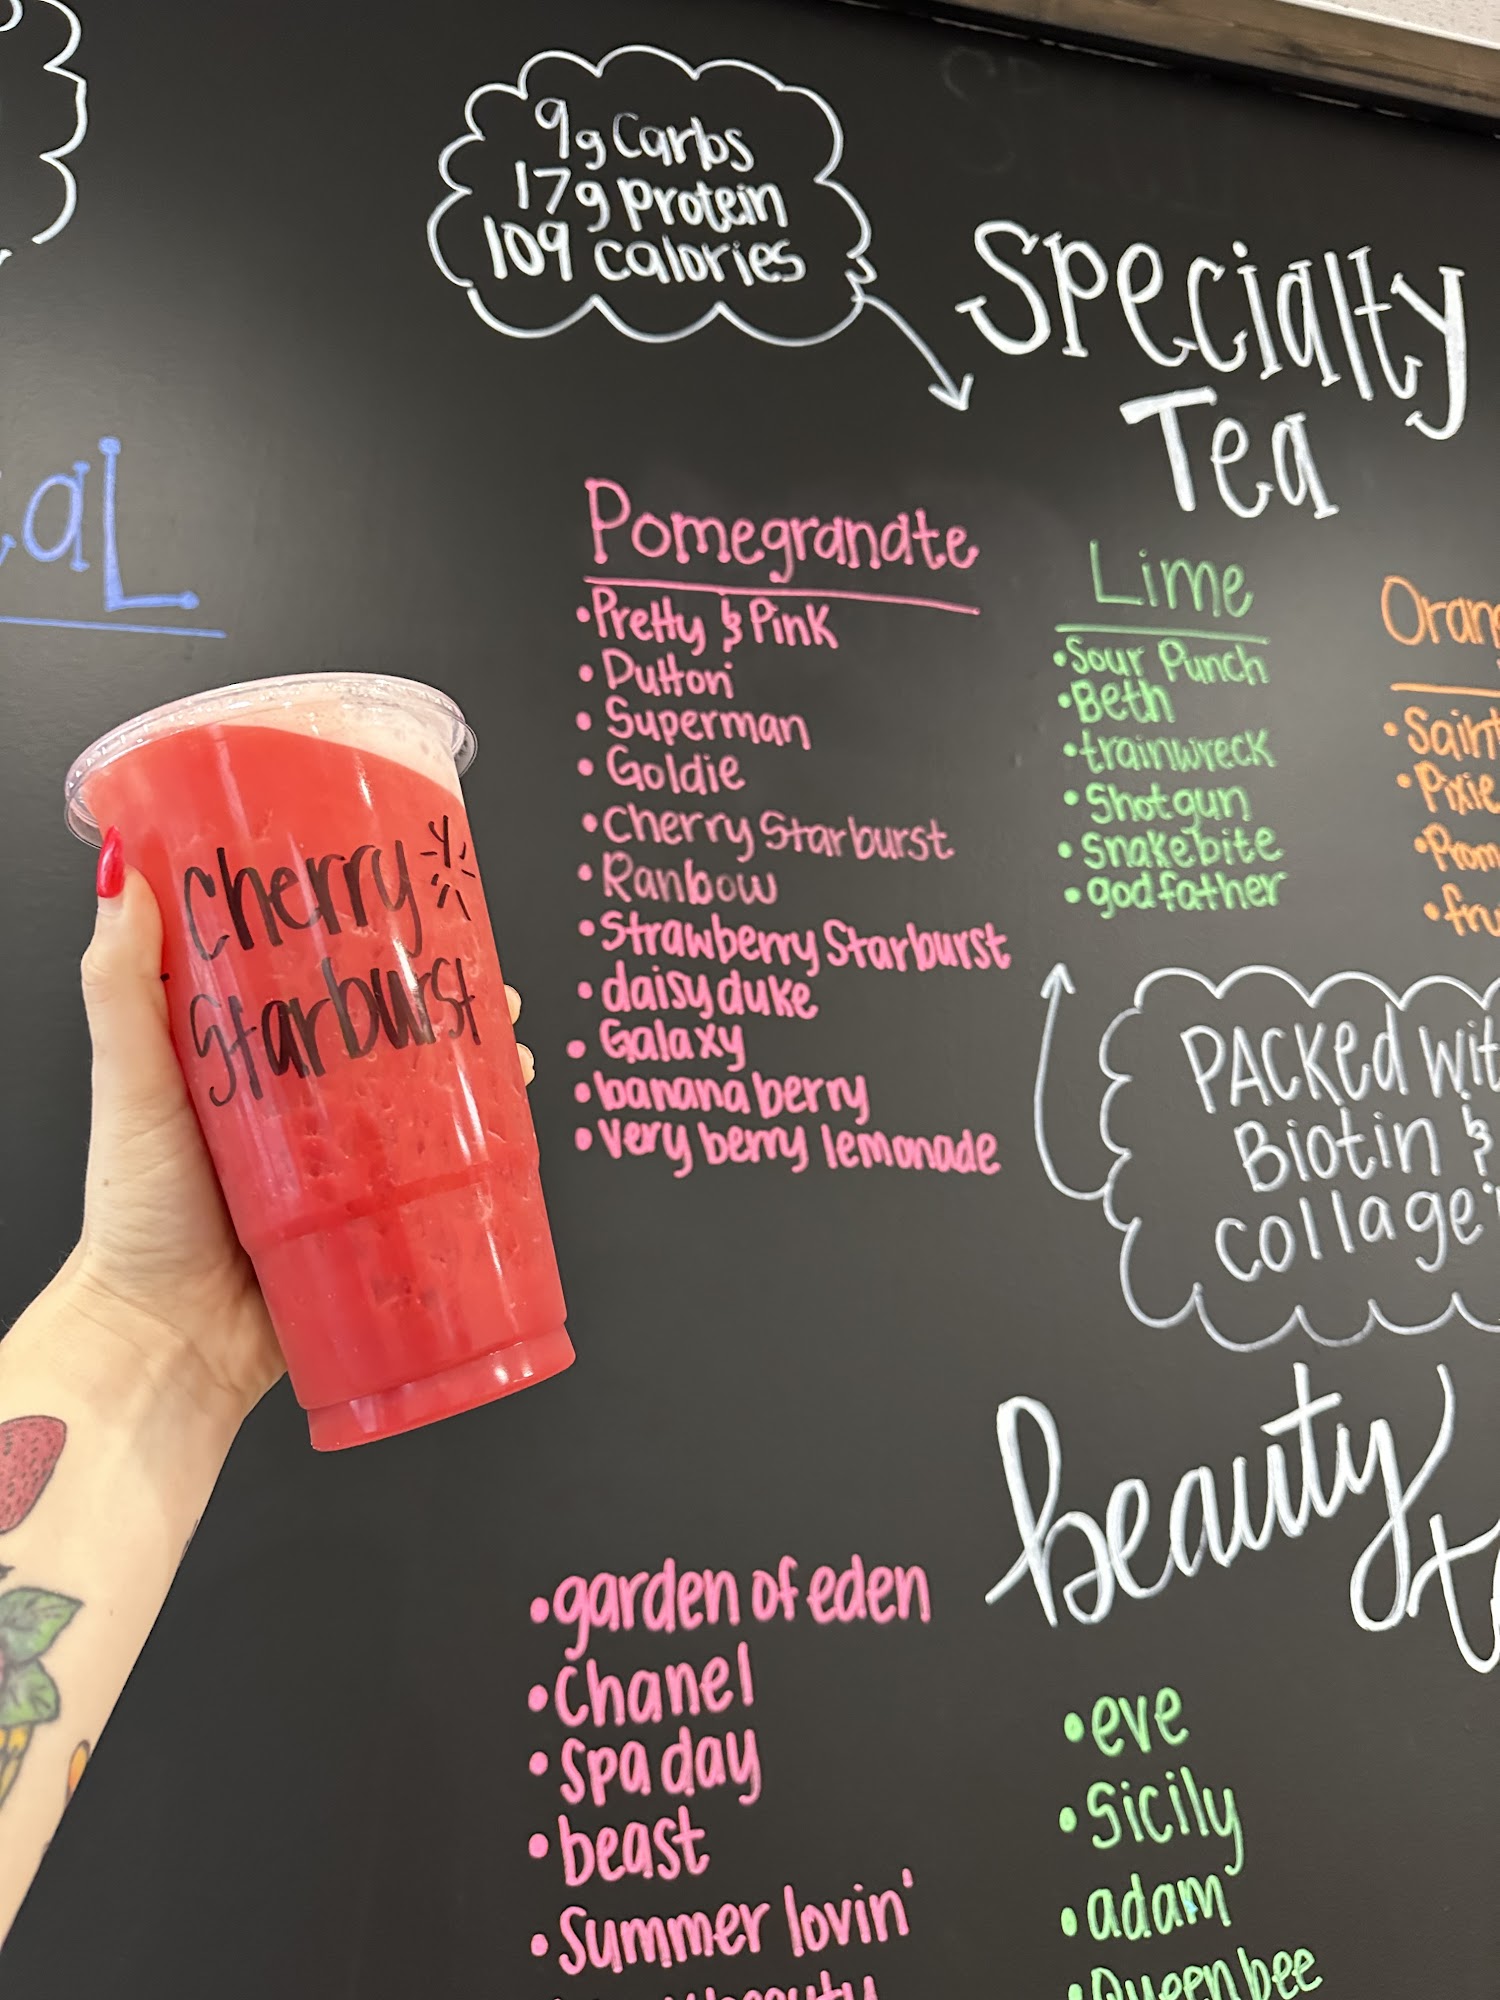 9g Carbs
17g Protein
109 calories
Specialty
Tea
Pomegranate
• Pretty & Pink
• Dutton
• Superman
• Goldie
• Cherry Starburst
• Ranbow
• Strawberry Starburst
• daisy duke
• Galaxy
• banana berry
• very berry lemonade
Lime
• Sour Punch
• Beth
• trainwreck
• Shotgun
• Snakebite
• godfather
Oran
• Saint
• Pixie
• Prom
• fru
Cherry
Starburst
PACKed wit
Biotin &
collage
beauty
• garden of eden
• Chanel
• Spa day
• beast
• Summer lovin'
beauty
• eve
• Sicily
• adam
• Queen bee